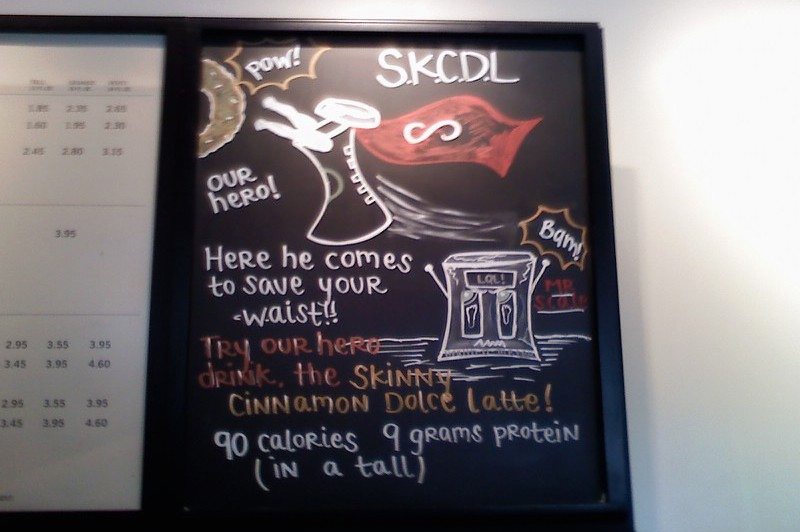 POW!
S.K.C.D.L
S
OUR
HERO!
Bam!
Here he comes
to save your
-waist!!
LOL!
MR
Scale
Try our hero
drink, the SKINNY
CINNAMON DOLCE Latte!
90 calories 9 grams protein
(IN a tall)
1.85 2.35 2.65
1.60 1.95 2.30
2.45 2.80 3.15
3.95
2.95 3.55 3.95
3.45 3.95 4.60
2.95 3.55 3.95
3.45 3.95 4.60